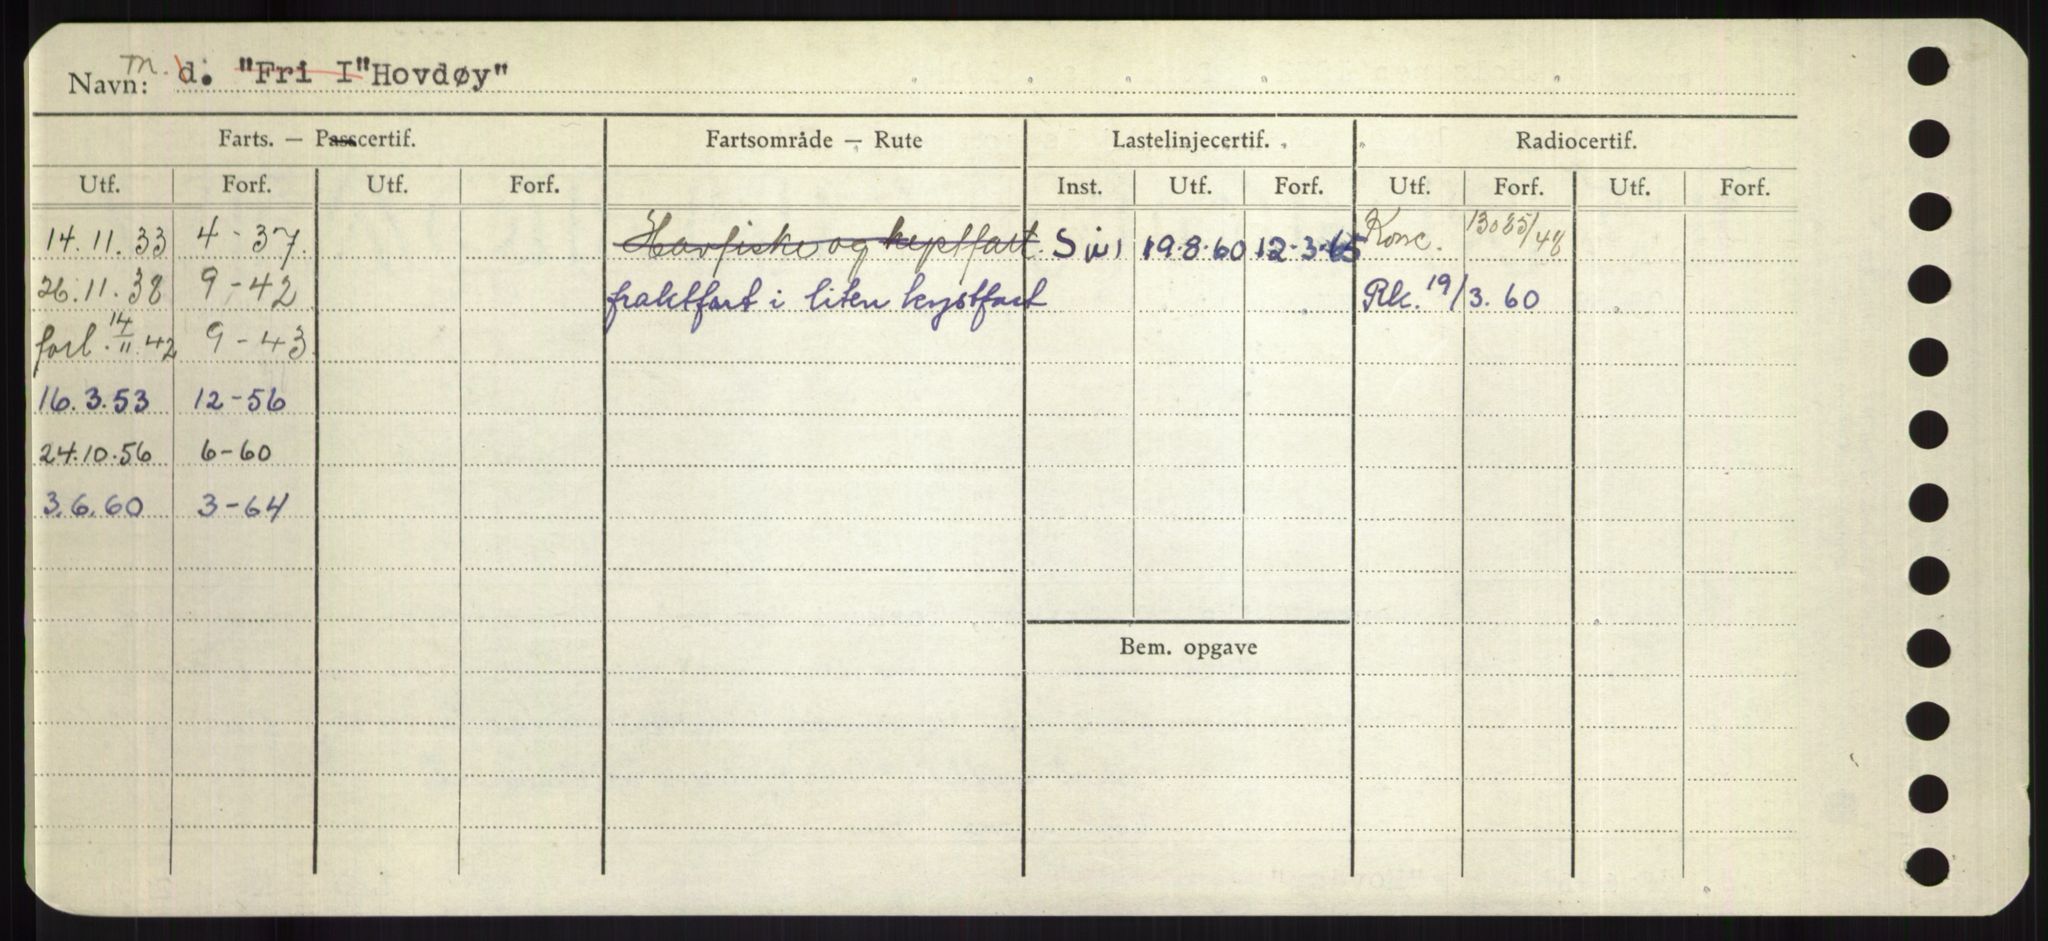 Navn: m. d. "Fri I" Hovdøy"
Farts. — Passcertif. Fartsområde — Rute Lastelinjecertif. Radiocertif.
Utf. Forf. Utf. Forf. Inst. Utf. Forf. Utf. Forf. Utf. Forf.
14.11.33 4-37. Havfiske og kystfart. 19.8.60 12-3-65 Konc. 13035/48
26.11.38 9-42 fraktfart i liten kystfart Rk. 19/3.60
forl. 14/11.42 9-43.
16.3.53 12-56
24.10.56 6-60
3.6.60 3-64
Bem. opgave